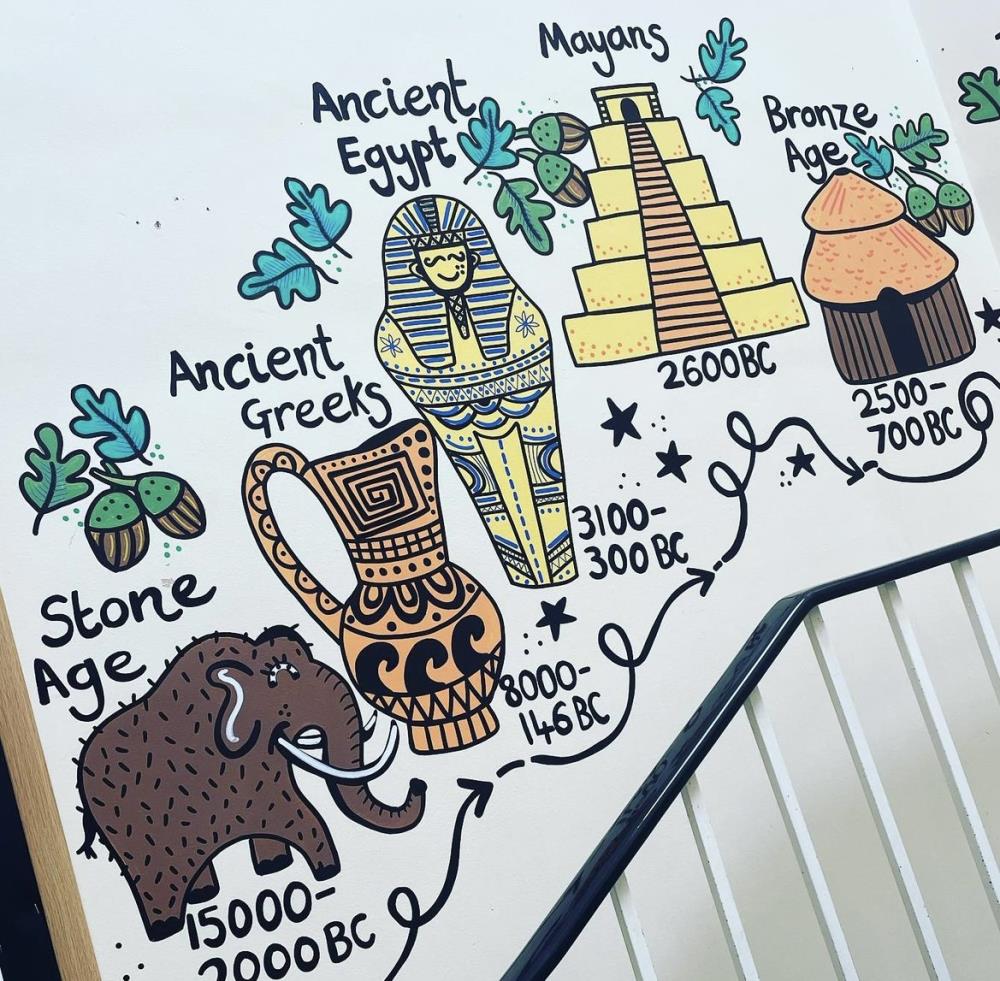 Stone
Age
15000-
2000 BC
Ancient
Greeks
8000-
146 BC
Ancient
Egypt
3100-
300 BC
Mayans
2600 BC
Bronze
Age
2500-
700 BC